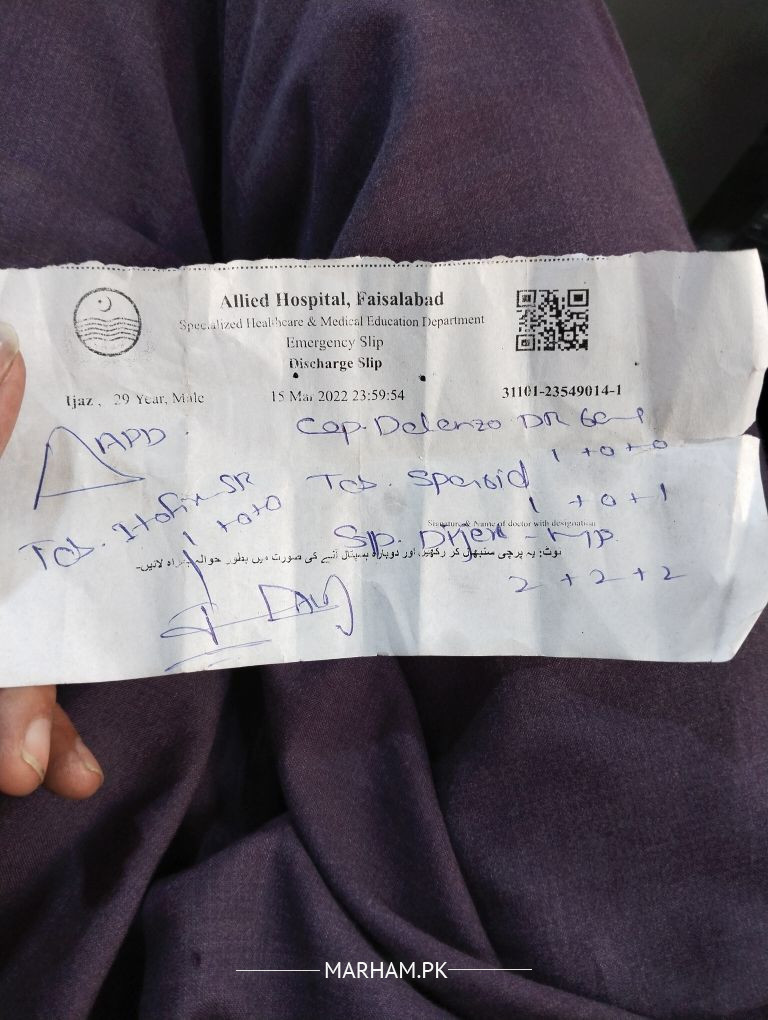 Allied Hospital, Faisalabad
Specialized Healthcare & Medical Education Department
Emergency Slip
Discharge Slip
Ijaz , 29 Year, Male 15 Mar 2022 23:59:54 31101-23549014-1
APD Cap. Delanzo DR 60mg
1 + 0 + 0
Tab. SR Tab.
1 + 0 + 0 1 + 0 + 1
Signature & Name of doctor with designation
Sp.
نوٹ: یہ پرچی سنبھال کر رکھیں اور دوبارہ ہسپتال آنے کی صورت میں بطور حوالہ ہمراہ لائیں۔
2 + 2 + 2
MARHAM.PK